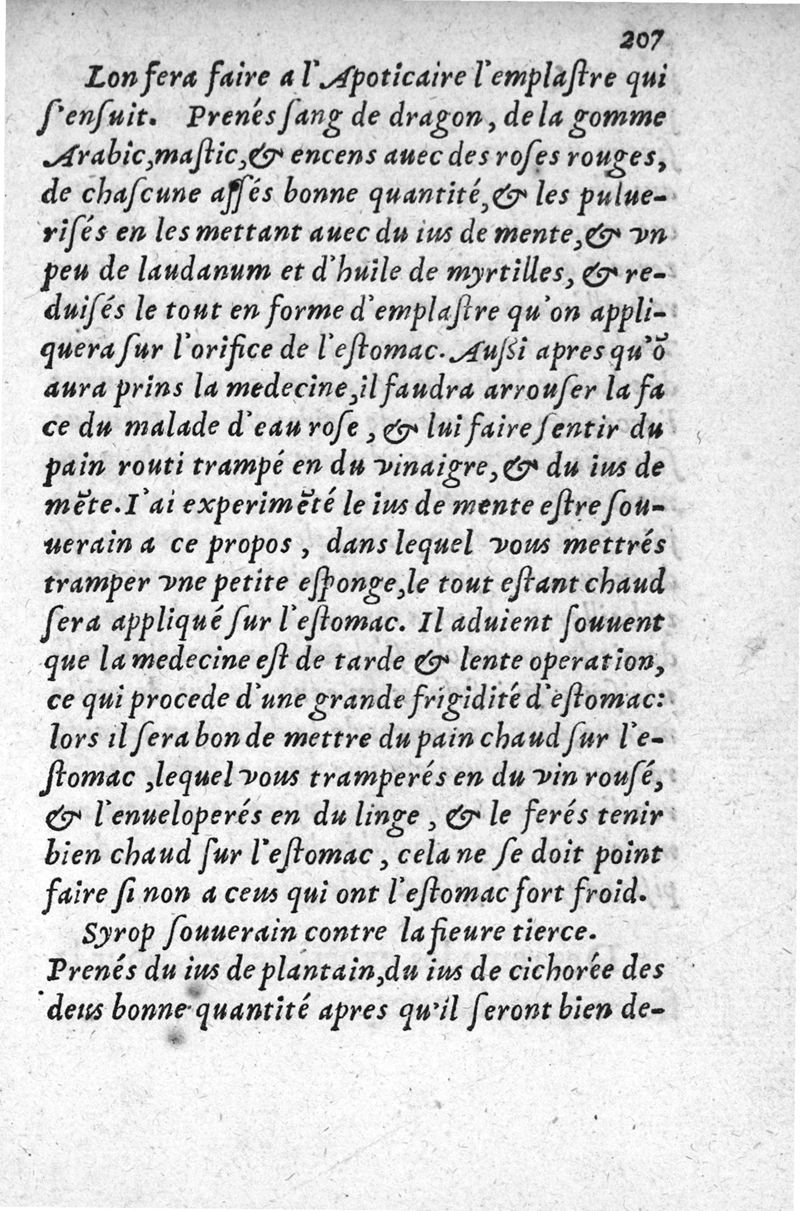 207
Lon fera faire a l'Apoticaire l'emplaſtre qui
ſ'enſuit. Prenés ſang de dragon, de la gomme
Arabic, maſtic, & encens auec des roſes rouges,
de chaſcune aſſés bonne quantité, & les pulue-
riſés en les mettant auec du ius de mente, & vn
peu de laudanum et d'huile de myrtilles, & re-
duiſés le tout en forme d'emplaſtre qu'on appli-
quera ſur l'orifice de l'eſtomac. Auſſi apres qu'õ
aura prins la medecine, il faudra arrouſer la fa
ce du malade d'eau roſe, & lui faire ſentir du
pain routi trampé en du vinaigre, & du ius de
mẽte. I'ai experimẽté le ius de mente eſtre ſou-
uerain a ce propos, dans lequel vous mettrés
tramper vne petite eſponge, le tout eſtant chaud
ſera appliqué ſur l'eſtomac. Il aduient ſouuent
que la medecine eſt de tarde & lente operation,
ce qui procede d'une grande frigidité d'eſtomac:
lors il ſera bon de mettre du pain chaud ſur l'e-
ſtomac, lequel vous tramperés en du vin rouſé,
& l'enueloperés en du linge, & le ferés tenir
bien chaud ſur l'eſtomac, cela ne ſe doit point
faire ſi non a ceus qui ont l'eſtomac fort froid.
Syrop ſouuerain contre la fieure tierce.
Prenés du ius de plantain, du ius de cichorée des
deus bonne quantité apres qu'il ſeront bien de-